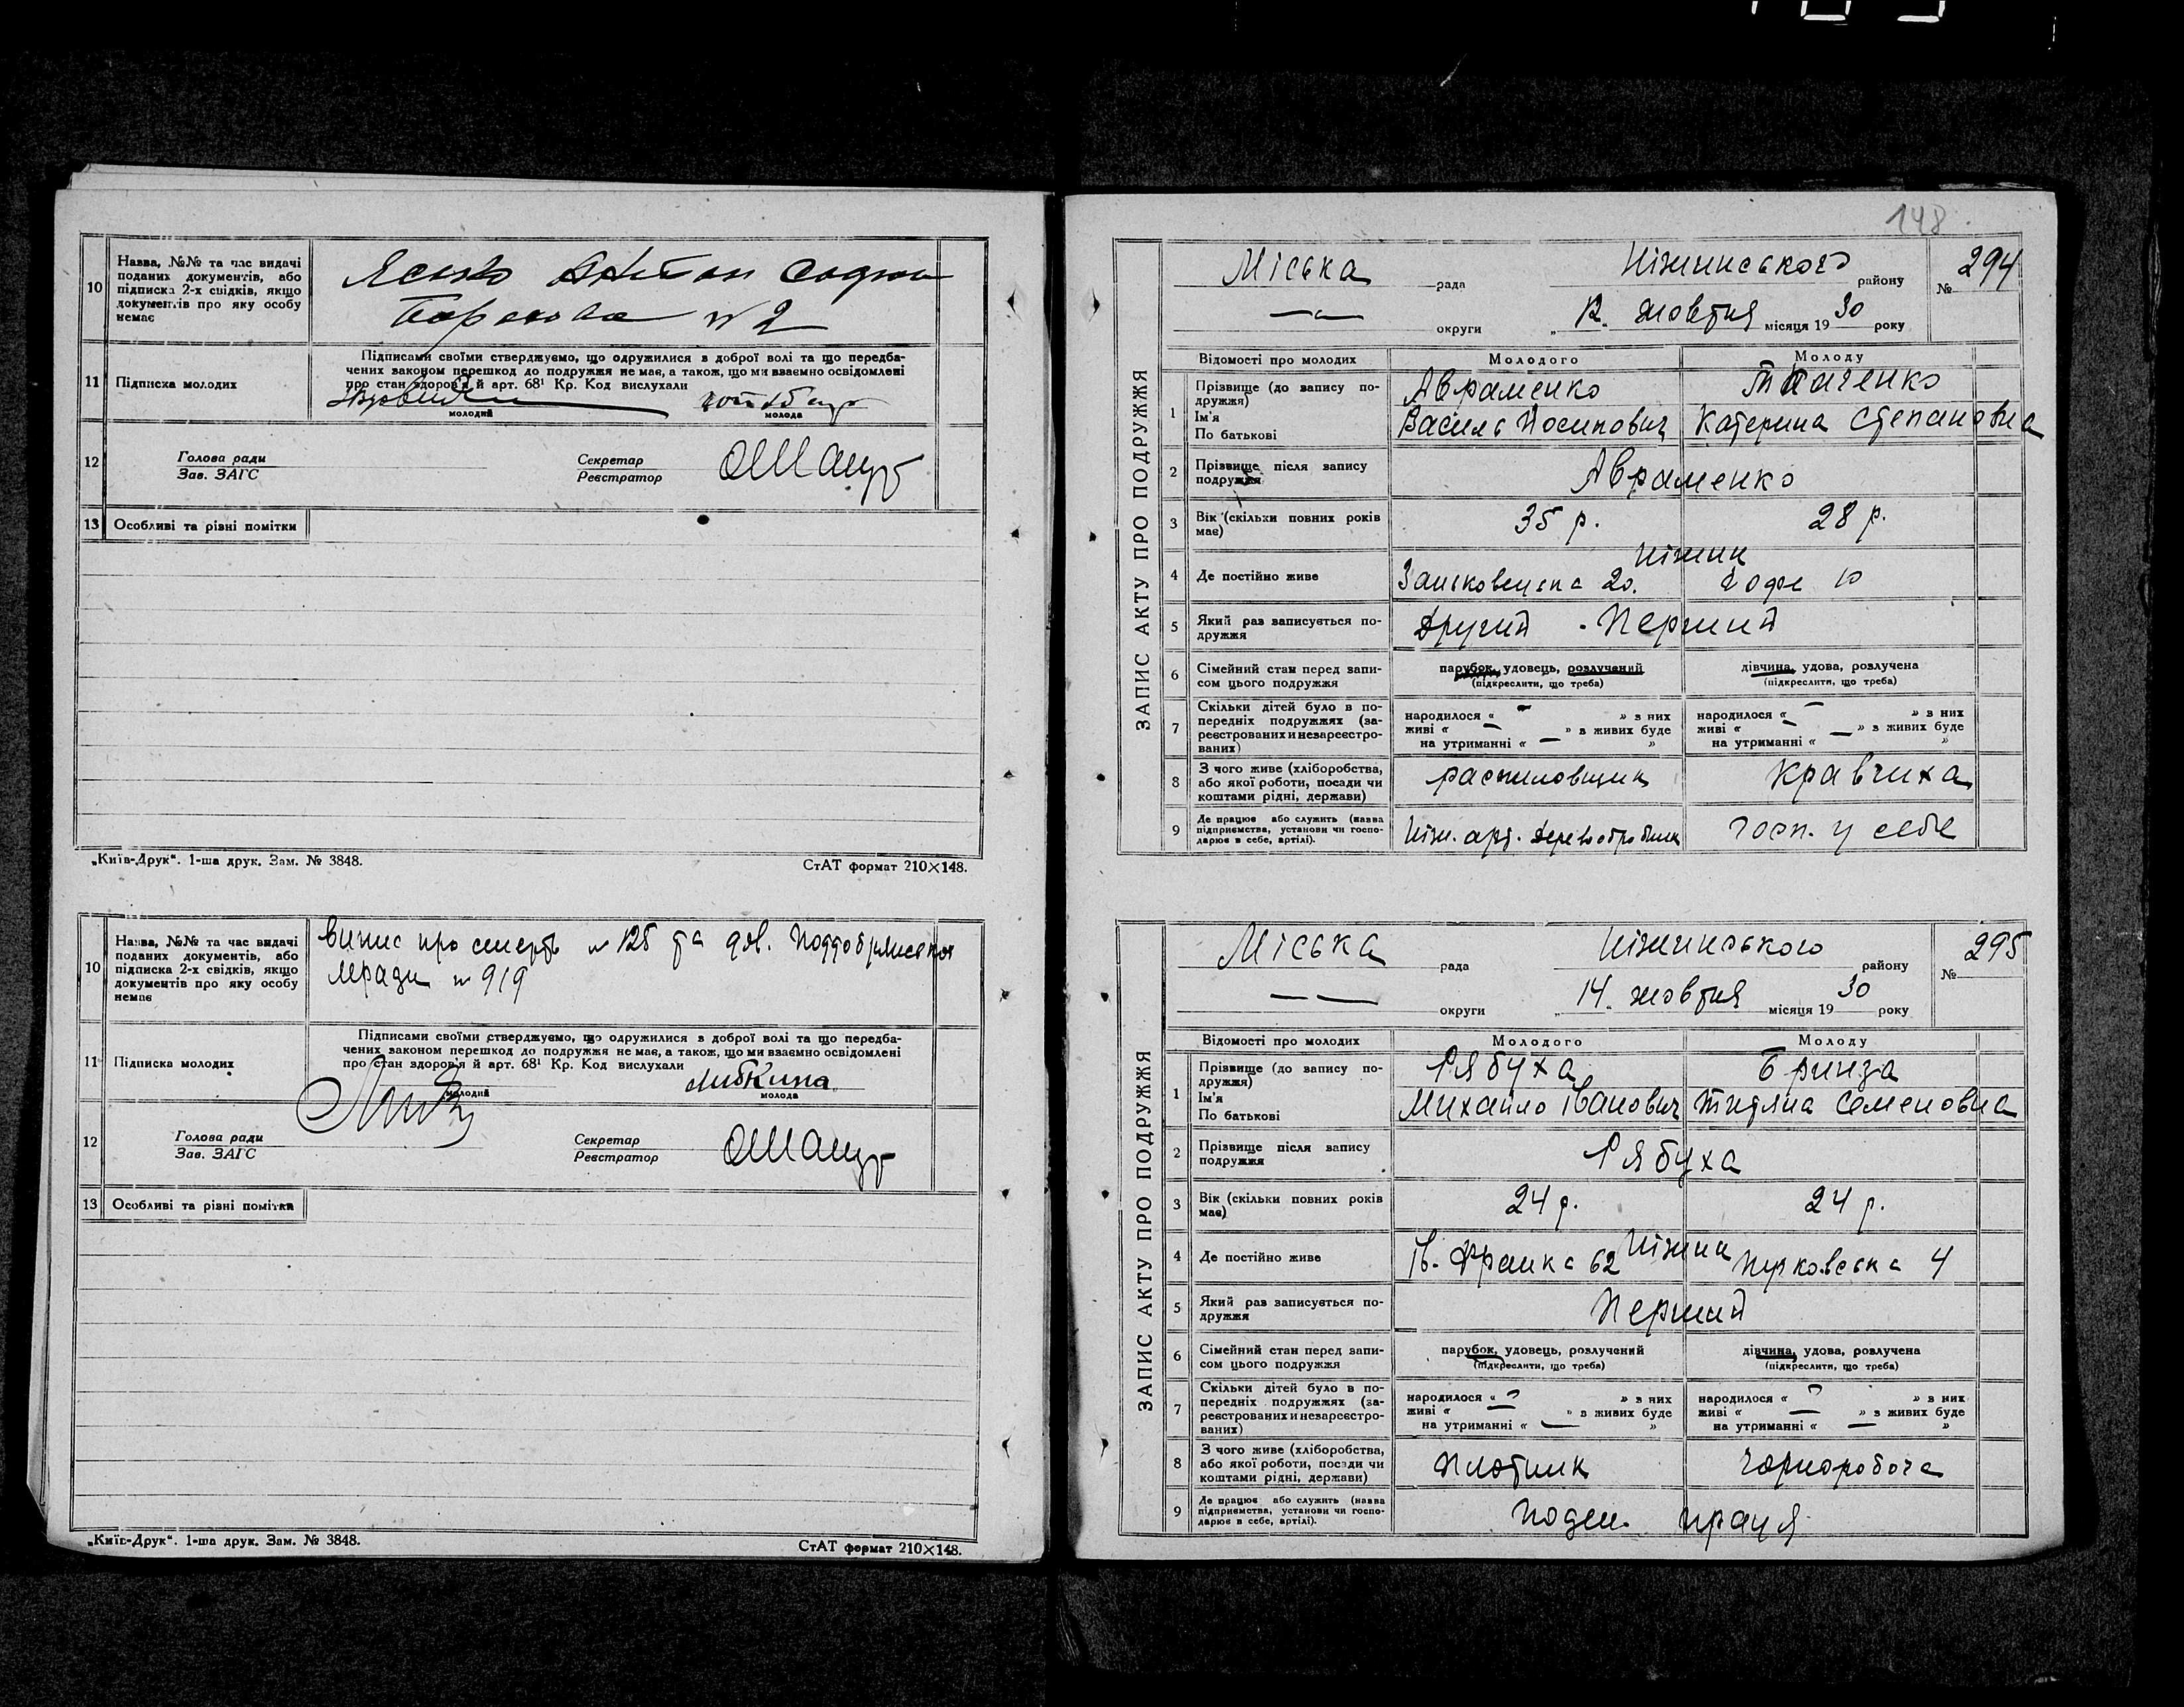 10 Назва, №№ та час видачі поданих документів, або підписка 2-х свідків, якщо документів про яку особу немає
Антон
№ 2
11 Підписка молодих
Підписами своїми стверджуємо, що одружилися з доброї волі та що передба-
чених законом перешкод до подружжя не має, а також, що ми взаємно освідомлені
про стан здоров'я й арт. 68¹ Кр. Код вислухали
молодий молода
12 Голова ради
Зав. ЗАГС
Секретар
Реєстратор
13 Особливі та різні помітки
„Київ-Друк“. 1-ша друк. Зам. № 3848. СтАТ формат 210×148.
10 Назва, №№ та час видачі поданих документів, або підписка 2-х свідків, якщо документів про яку особу немає
Випис про смерть № 125 та дов.
№ 919
11 Підписка молодих
Підписами своїми стверджуємо, що одружилися з доброї волі та що передба-
чених законом перешкод до подружжя не має, а також, що ми взаємно освідомлені
про стан здоров'я й арт. 68¹ Кр. Код вислухали
Либкина
молодий молода
12 Голова ради
Зав. ЗАГС
Секретар
Реєстратор
13 Особливі та різні помітки
„Київ-Друк“. 1-ша друк. Зам. № 3848. СтАТ формат 210×148.
148.
ЗАПИС АКТУ ПРО ПОДРУЖЖЯ
Міська рада Ніжинського району № 294
— округи „12“ жовтня місяця 1930 року
Відомості про молодих Молодого Молоду
1 Прізвище (до запису подружжя) Авраменко Ткаченко
Ім'я По батькові Василь Йосипович Катерина Степановна
2 Прізвище після запису подружжя Авраменко
3 Вік (скільки повних років має) 35 р. 28 р.
4 Де постійно живе Ніжин
20. 10
5 Який раз записується подружжя Другий - Перший
6 Сімейний стан перед записом цього подружжя парубок, удовець, розлучений дівчина, удова, розлучена
(підкреслити, що треба) (підкреслити, що треба)
7 Скільки дітей було в попередніх подружжях (зареєстрованих и незареєстрованих) народилося « — » з них живі « — » в живих буде на утриманні « — » народилося « — » з них живі « — » в живих буде на утриманні « — »
8 З чого живе (хліборобства, або якої роботи, посади чи коштами рідні, держави) распиловщик кравчиха
9 Де працює або служить (назва підприємства, установи чи господарює в себе, артілі). Ніж. арт. Деревообробник госп. у себе
ЗАПИС АКТУ ПРО ПОДРУЖЖЯ
Міська рада Ніжинського району № 295
— — округи „14“ жовтня місяця 1930 року
Відомості про молодих Молодого Молоду
1 Прізвище (до запису подружжя) Рябуха Бринза
Ім'я По батькові Михайло Іванович Тетяна Семеновна
2 Прізвище після запису подружжя Рябуха
3 Вік (скільки повних років має) 24 р. 24 р.
4 Де постійно живе Ніжин
Ів. Франка 62 4
5 Який раз записується подружжя Перший
6 Сімейний стан перед записом цього подружжя парубок, удовець, розлучений дівчина, удова, розлучена
(підкреслити, що треба) (підкреслити, що треба)
7 Скільки дітей було в попередніх подружжях (зареєстрованих и незареєстрованих) народилося « — » з них живі « — » в живих буде на утриманні « — » народилося « — » з них живі « — » в живих буде на утриманні « — »
8 З чого живе (хліборобства, або якої роботи, посади чи коштами рідні, держави) плотник чорноробоча
9 Де працює або служить (назва підприємства, установи чи господарює в себе, артілі). поден. праця